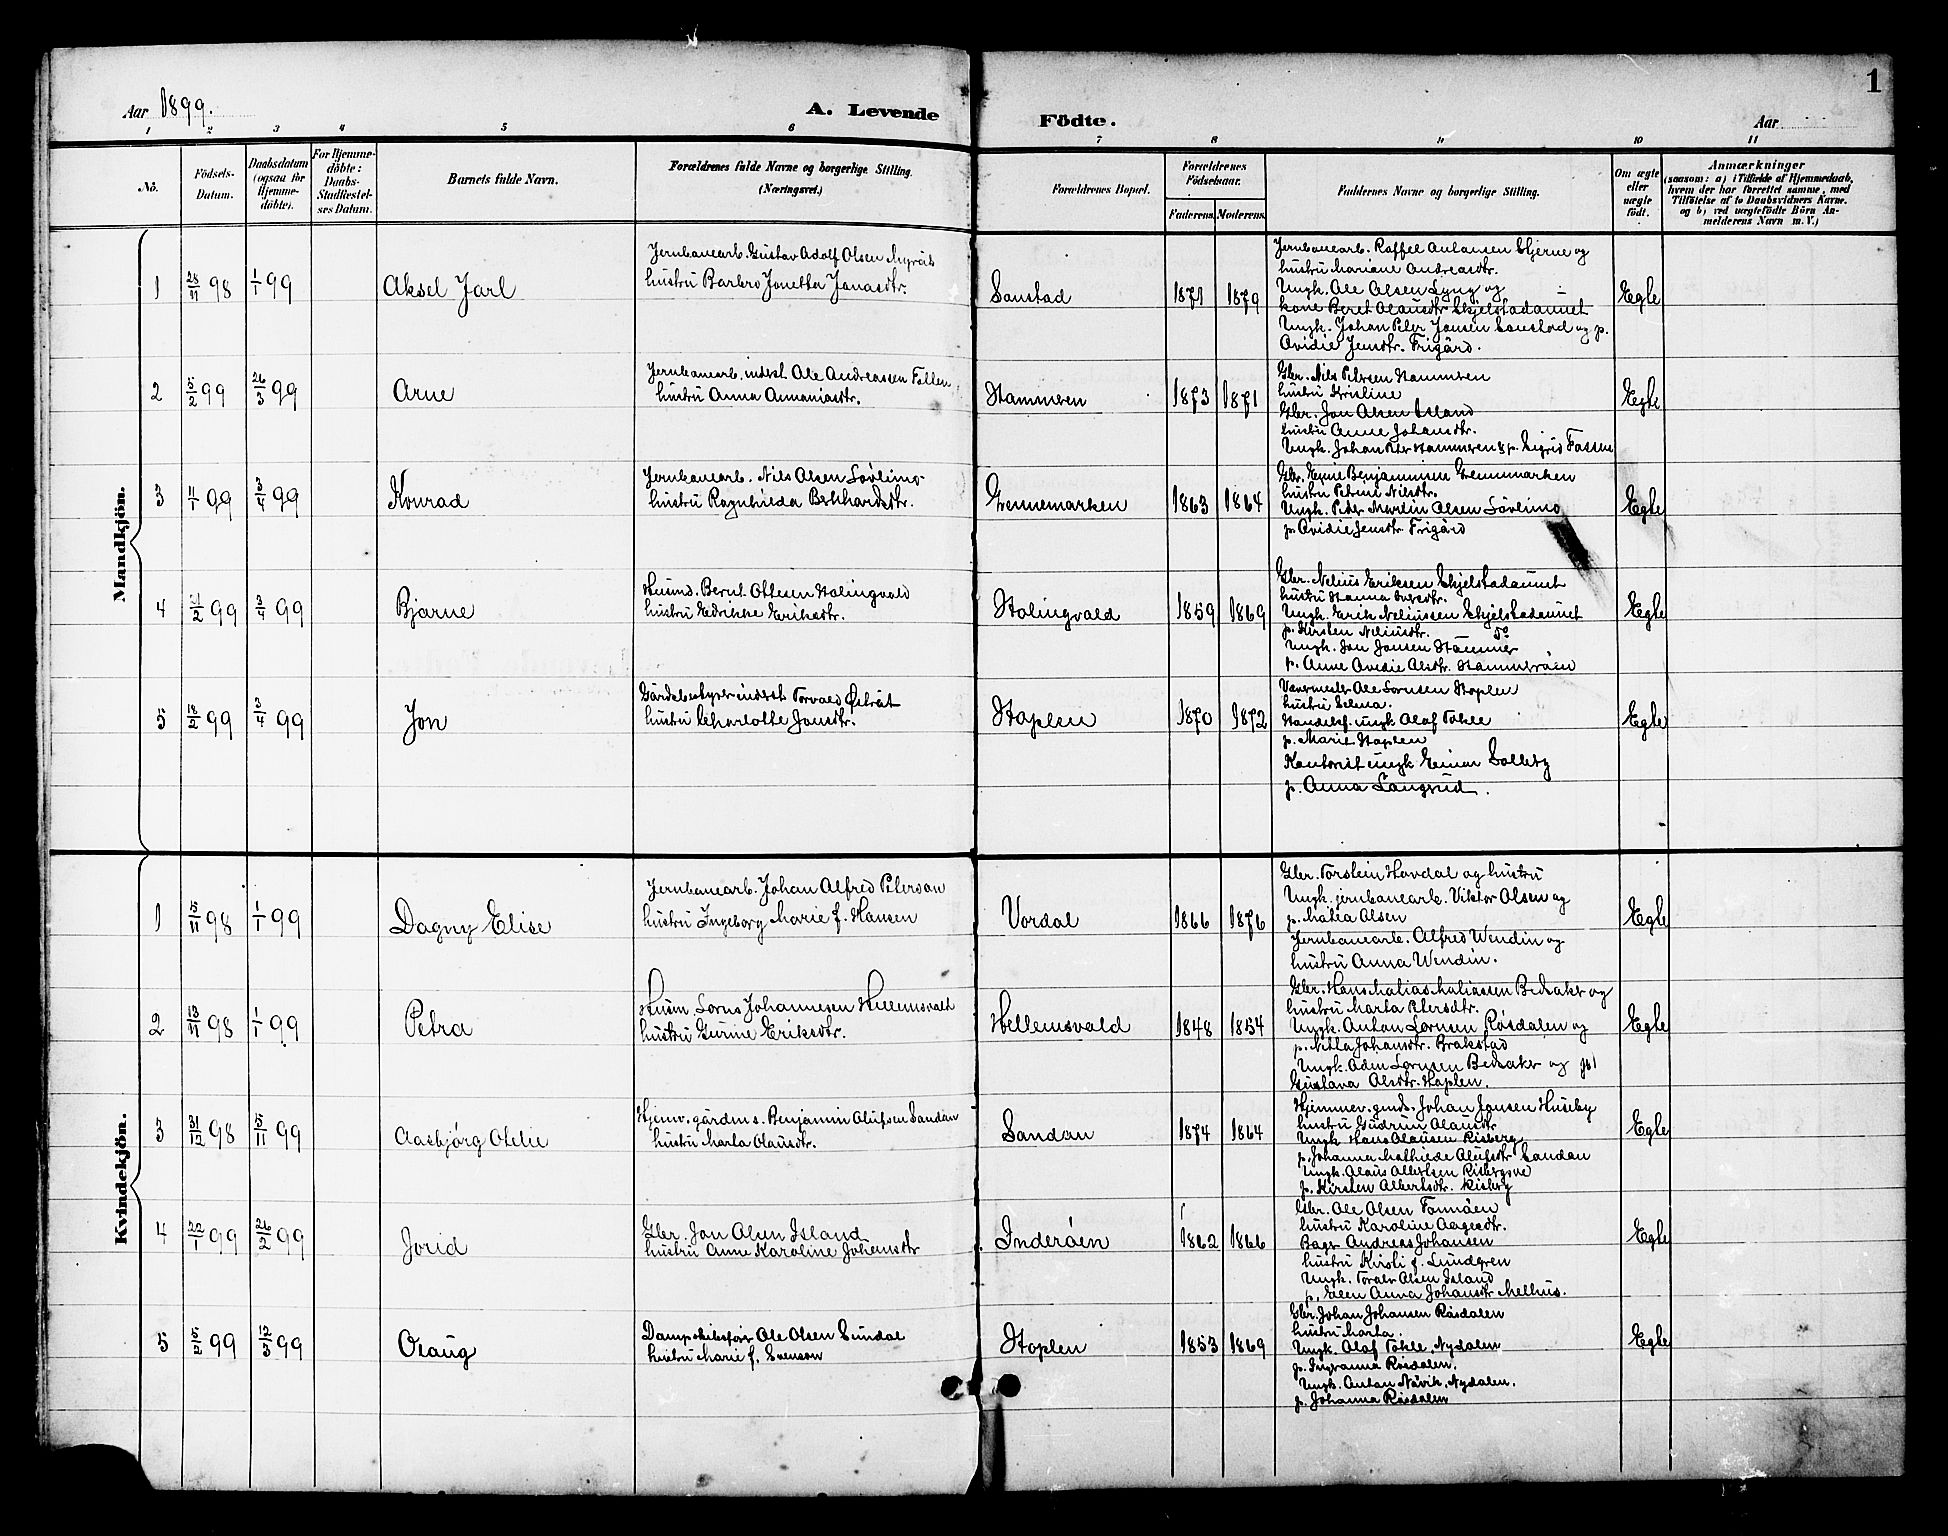 1
Aar 1899.
A. Levende
Födte.
Aar
1 2 3 4 5 6 7 8 9 10 11
No.
Födsels-
Datum.
Daabsdatum
(ogsaa for
Hjemme-
döbte).
For Hjemme-
döbte:
Daabs-
Stadfæstel-
ses Datum.
Barnets fulde Navn.
Forældrenes fulde Navne og borgerlige Stilling.
(Næringsvei.)
Forældrenes Bopæl.
Forældrenes
Födselsaar.
Faderens. Moderens.
Faddernes Navne og borgerlige Stilling.
Om ægte
eller
uægte
født.
Anmærkninger
(saasom: a) i Tilfælde af Hjemmedaab,
hvem der har forrettet samme, med
Tilföielse af to Daabsvidners Navne.
og b) ved uægtefödte Börn An-
melderens Navn m. V.)
Mandkjön.
1 28/11 98 1/1 99 Aksel Jarl
Jernbanearb. Gustav Adolf Olsen
hustru Barbro Jonetta Jonasdtr.
Sanstad 1871 1879
Jernbanearb. Raffel Hjerne og
hustru Mariane Andreasdtr.
Ungk. Ole Olsen Lyng og
kone Beret Olausdtr Skjelstadaunet
Ungk. Johan Peter Jonsen Sanstad og p.
Ovidie Jensdtr. Frigård.
Egte
2 5/2 99 26/3 99 Arne
Jernbanearb. inderst Ole Andreassen Follen
hustru Anna Ananiasdtr.
Hammren 1873 1871
Gbr. Nils Petersen Hammren
hustru Kristine
Gbr. Jon Olsen Island
hustru Anne Johansdtr.
Ungk. Johan Peter Hammren & p. Sigrid Fossem
Egte
3 11/1 99 3/4 99 Konrad
Jernbanearb. Nils Olsen Løvlimo
hustru Ragnhilda Bernhardsdtr.
Grennemarken 1863 1864
Gbr. Benjaminsen Grennmarken
hustru Petrine Nilsdtr.
Ungk. Peder Martin Olsen Løvlimo
p. Ovidie Jensdtr. Frigård
Egte
4 /2 99 3/4 99 Bjarne
Husmd. Bernt Ottesen Holingvald
hustru Edrikke Eriksdtr.
Holingvald 1859 1869
Gbr. Nelius Eriksen Skjelstadaunet
hustru Hanna
Ungk. Erik Neliussen Skjelstadaunet
p. Kirsten Neliusdtr. So
Ungk. Jon Jonsen Hammer
p. Anne Ovidie Olsdtr. Hammerøien
Egte
5 18/2 99 3/4 99 Jon
Gårdsbestyrer inderst Torvald
hustru Charlotte Jonsdtr.
Hoplen 1870 1872
Ole Sørnsen Hoplen
hustru Selma.
Handelsf. ungk Olaf Tokle
p. Marit Hoplen
Kontorist ungk Einar Solleby
p. Anna Langrud.
Egte
Kvindekjön.
1 15/11 98 1/1 99 Dagny Elise
Jernbanearb. Johan Alfred Peterson
hustru Ingeborg Marie f. Hansen
Vordal 1866 1876
Gbr. Torstein Hovdal og hustru
Ungk. jernbanearb. Viktor Olsen og
p. Malea Olsen
Jernbanearb. Alfred Wendin og
hustru Anna Wendin.
Egte
2 13/11 98 1/1 99 Petra
Husm Sørns Johannesen Hellemsvald
hustru Gurine Eriksdtr.
Hellemsvald 1848 1854
Gbr. Hans Malias Maliassen Bedsaker og
hustru Marta Petersdtr.
Ungk. Anton Sørnsen Røsdalen og
p. Netla Johansdtr. Brakstad
Ungk. Odin Sørnsen Bedsaker og p.
Gustava Olsdtr. Hoplen.
Egte
3 31/12 98 5/11 99 Aasbjørg Otelie
Hjemv. gårdm s. Benjamin Olufsen Sandan
hustru Marta Olausdtr.
Sandan 1874 1864
Hjemmev. gmds. Johan Jonsen Huseby
hustru Gudrun Olausdtr
Ungk Hans Olausen Risberg
p. Johanna Mathilde Olufsdtr Sandan
Ungk. Olaus Albertsen Risbergsve
p. Kirsten Albertsdtr. Risberg
Egte
4 22/1 99 26/2 99 Jorid
Gbr. Jon Olsen Island
hustru Anne Karoline Johansdtr
Inderøen 1862 1866
Gbr. Ole Olsen Tomøen
hustru Karoline Aagesdtr.
Bager Andreas Johansen
hustru Kirsti f. Lundgren
Ungk. Toralv Olsen Island
p. Elen Anna Johansdtr Melhus.
Egte
5 99 99 Oraug
Dampskibsfør Ole Olsen Sundal
hustru Marie f. Svenson
Hoplen 1853 1869
Gbr. Johan Johansen Røsdalen
hustru Marta.
Ungk. Olaf Tokle, Nydalen
p. Ingranna Røsdalen.
Ungk. Anton Navik, Nydalen.
p. Johanna Røsdalen
Egte